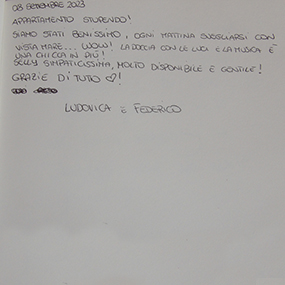 08 SETTEMBRE 2023
APPARTAMENTO STUPENDO!
SIAMO STATI BENISSIMO, OGNI MATTINA SVEGLIARSI CON
VISTA MARE... WOW! LA DOCCIA CON LE LUCI E LA MUSICA È
UNA CHICCA IN PIÙ!
SELLY SIMPATICISSIMA, MOLTO DISPONIBILE E GENTILE!
GRAZIE DI TUTO ♡!
LUDOVICA E FEDERICO